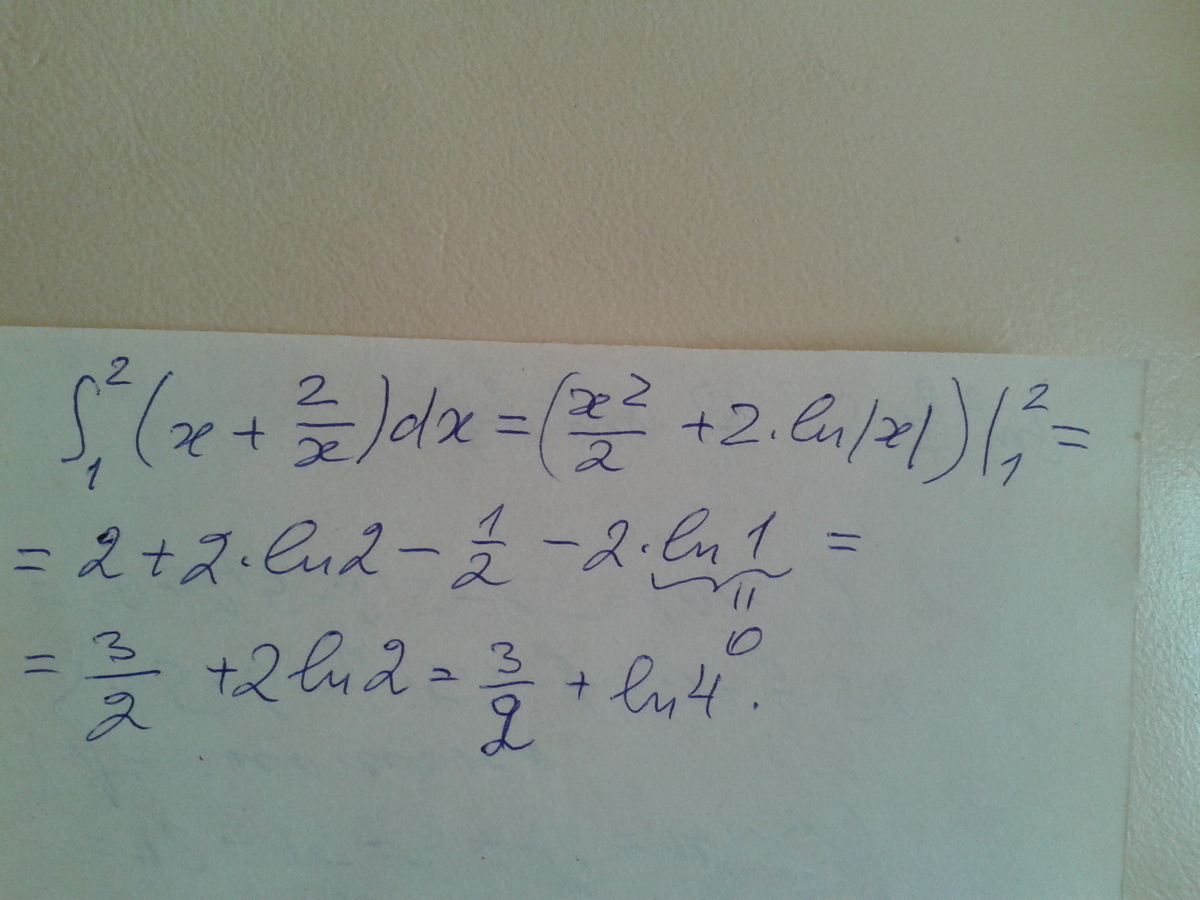 ∫₁² (x + 2/x) dx = (x²/2 + 2·ln|x|) |₁² =
= 2 + 2·ln2 − 1/2 − 2·ln1 =
= 0
= 3/2 + 2ln2 = 3/2 + ln4.